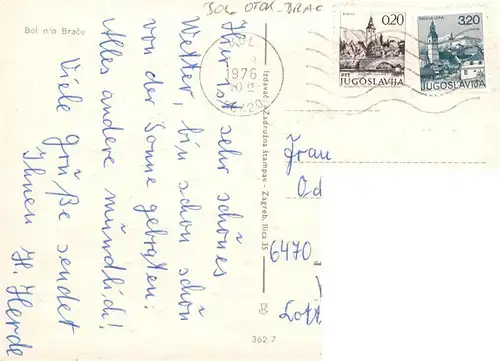 BOL OTOK-BRAC
Bol n/o Braču
Hier ist sehr schönes
Wetter, bin schon schön
von der Sonne gebraten.
Alles andere mündlich!
Viele Grüße sendet
Ihnen H. Herde
Izdavač: Zadružna štampa - Zagreb, Ilica 35
362/7
BOL
1976
0.20
JUGOSLAVIJA
3.20
JUGOSLAVIJA
Frau
6470